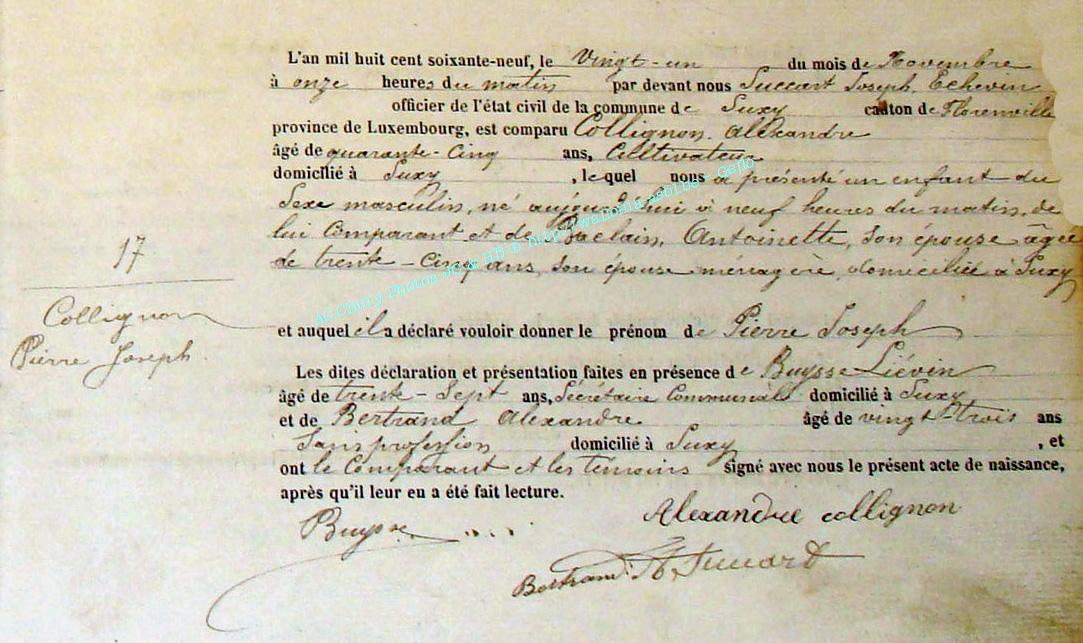 L'an mil huit cent soixante-neuf, le Vingt-un du mois de Novembre
à onze heures du matin par devant nous Succart Joseph, Echevin
officier de l'état civil de la commune de Suxy canton de Florenville
province de Luxembourg, est comparu Collignon, Alexandre
âgé de quarante-Cinq ans, Cultivateur
domicilié à Suxy, lequel nous a présenté un enfant du
Sexe masculin, né aujourd'hui à neuf heures du matin, de
lui Comparant et de Baclain, Antoinette, son épouse âgée
de trente-Cinq ans, son épouse ménagère, domiciliée à Suxy
17
Collignon
Pierre Joseph
et auquel il a déclaré vouloir donner le prénom de Pierre Joseph
Les dites déclaration et présentation faites en présence de Buysse Liévin
âgé de trente-Sept ans, Sécrétaire Communal domicilié à Suxy
et de Bertrand Alexandre âgé de vingt-trois ans
Sans profession domicilié à Suxy, et
ont le Comparant et les témoins signé avec nous le présent acte de naissance,
après qu'il leur en a été fait lecture.
Buysse Alexandre collignon
Bertrand